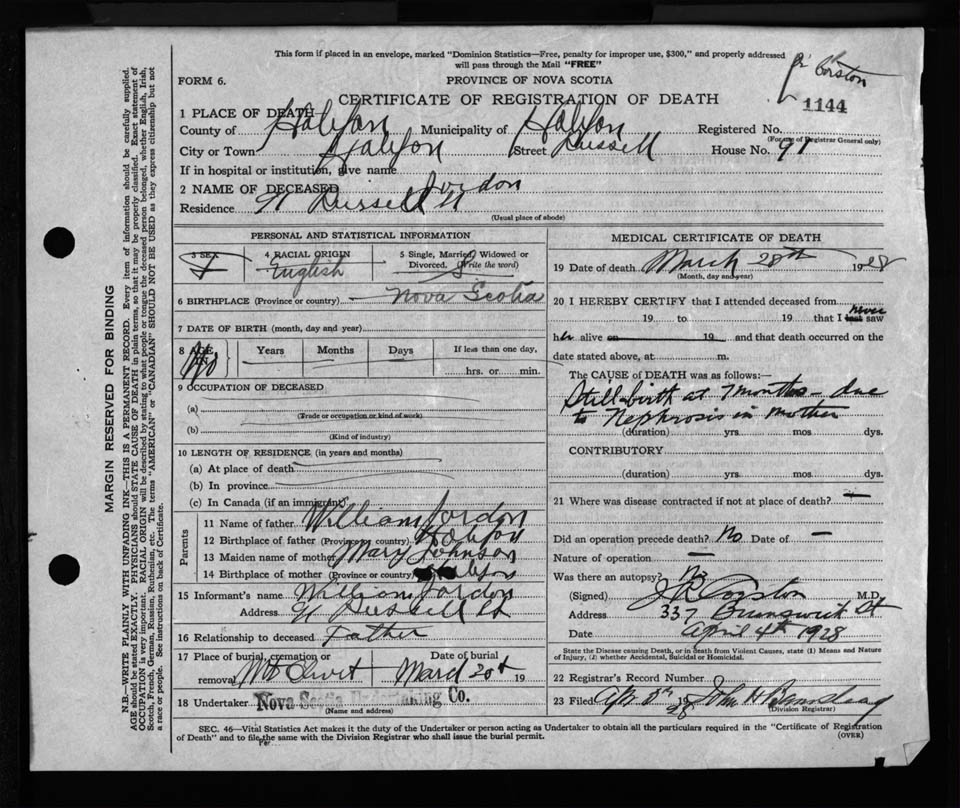 This form if placed in an envelope, marked "Dominion Statistics—Free, penalty for improper use, $300," and properly addressed
will pass through the Mail "FREE"
FORM 6.
PROVINCE OF NOVA SCOTIA
CERTIFICATE OF REGISTRATION OF DEATH
1144
1 PLACE OF DEATH
County of Halifax Municipality of Halifax Registered No.
(For use of Registrar General only)
City or Town Halifax Street Russell House No. 91
If in hospital or institution, give name
2 NAME OF DECEASED Jordon
Residence 91 Russell St
(Usual place of abode)
PERSONAL AND STATISTICAL INFORMATION
3 SEX F
4 RACIAL ORIGIN English
5 Single, Married, Widowed or Divorced. (Write the word) S
6 BIRTHPLACE (Province or country) Nova Scotia
7 DATE OF BIRTH (month, day and year)
8 AGE IN Years Months Days If less than one day,
hrs. or min.
9 OCCUPATION OF DECEASED
(a)
(Trade or occupation or kind of work)
(b)
(Kind of industry)
10 LENGTH OF RESIDENCE (in years and months)
(a) At place of death
(b) In province
(c) In Canada (if an immigrant)
Parents
11 Name of father William Jordon
12 Birthplace of father (Province or country) Halifax
13 Maiden name of mother Mary Johnson
14 Birthplace of mother (Province or country) Halifax
15 Informant's name William Jordon
Address 91 Russell St
16 Relationship to deceased Father
17 Place of burial, cremation or removal Mt Olivet
Date of burial 19
18 Undertaker Nova Scotia Undertaking Co.
(Name and address)
MEDICAL CERTIFICATE OF DEATH
19 Date of death March 28th 1928
(Month, day and year)
20 I HEREBY CERTIFY that I attended deceased from
19 to 19 that I last never saw
her alive on 19 and that death occurred on the
date stated above, at m.
The CAUSE of DEATH was as follows:—
Still-birth at 7 months due
to Nephrosis in mother
(duration) yrs mos dys.
CONTRIBUTORY
(duration) yrs mos dys.
21 Where was disease contracted if not at place of death? —
Did an operation precede death? No Date of —
Nature of operation —
Was there an autopsy? No
(Signed) J R Corston M.D.
Address 337 Brunswick St
Date April 4th 1928
State the Disease causing Death, or in death from Violent Causes, state (1) Means and Nature
of Injury, (2) whether Accidental, Suicidal or Homicidal.
22 Registrar's Record Number
23 Filed John H
(Division Registrar)
SEC. 46—Vital Statistics Act makes it the duty of the Undertaker or person acting as Undertaker to obtain all the particulars required in the "Certificate of Registration
of Death" and to file the same with the Division Registrar who shall issue the burial permit.
(OVER)
MARGIN RESERVED FOR BINDING
N.B.—WRITE PLAINLY WITH UNFADING INK—THIS IS A PERMANENT RECORD. Every item of information should be carefully supplied.
AGE should be stated EXACTLY. PHYSICIANS should STATE CAUSE OF DEATH in plain terms, so that it may be properly classified. Exact statement of
OCCUPATION is very important. RACIAL ORIGIN will be described by stating to what people or tongue the deceased person belonged, whether English, Irish,
Scotch, French, German, Russian, Ruthenian, etc. The terms "AMERICAN" or "CANADIAN" SHOULD NOT BE USED as they express citizenship but not
a race or people. See instructions on back of Certificate.